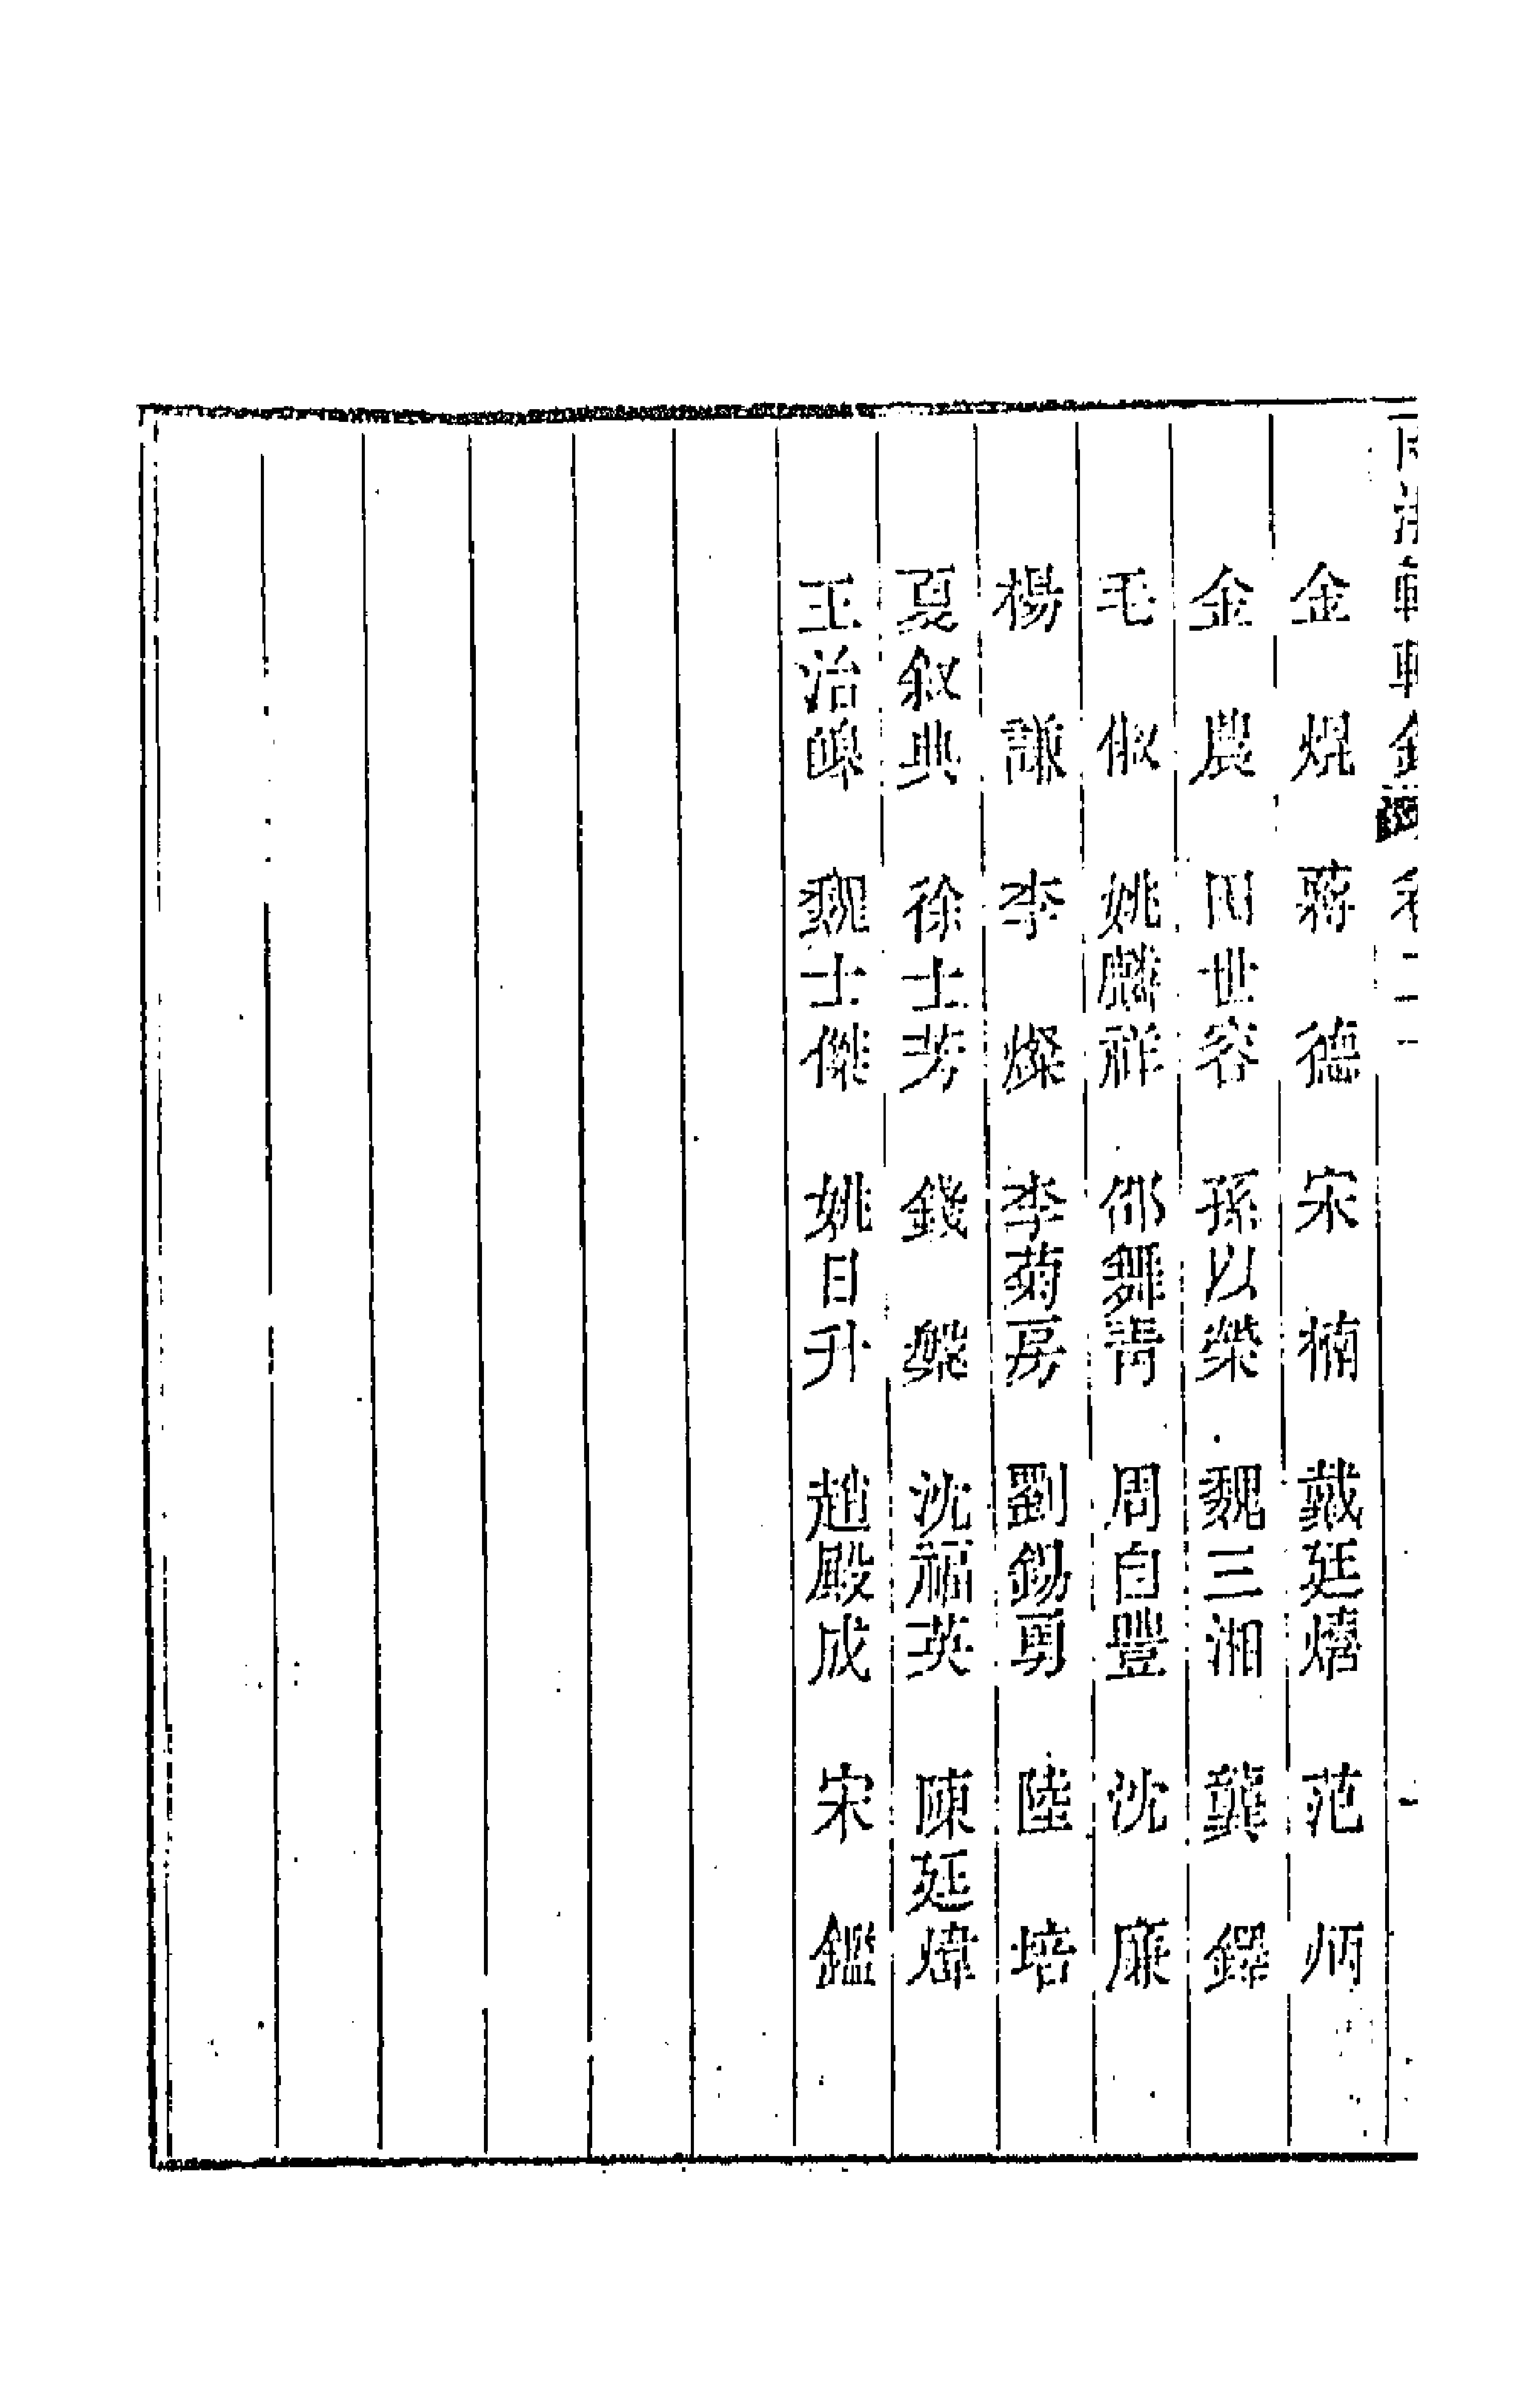 金焜　蔣德　宋楠　戴廷熺　范炳
金農　周世容　孫以榮　魏三湘　龔鐸
毛俶　姚麟祥　邵舞青　周自豐　沈廉
楊謙　李燦　李菊房　劉錫勇　陸培
夏叙典　徐士芳　錢槃　沈福英　陳延煒
王治皞　魏士傑　姚日升　趙殿成　宋鑑